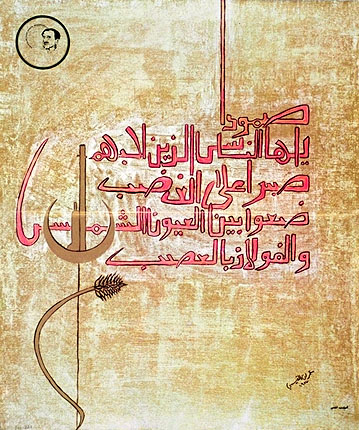 صمود
يايها الناس الذين
صبرا على الغضب
ضعوا بين العيون الشمس
والفولاذ بالعصب